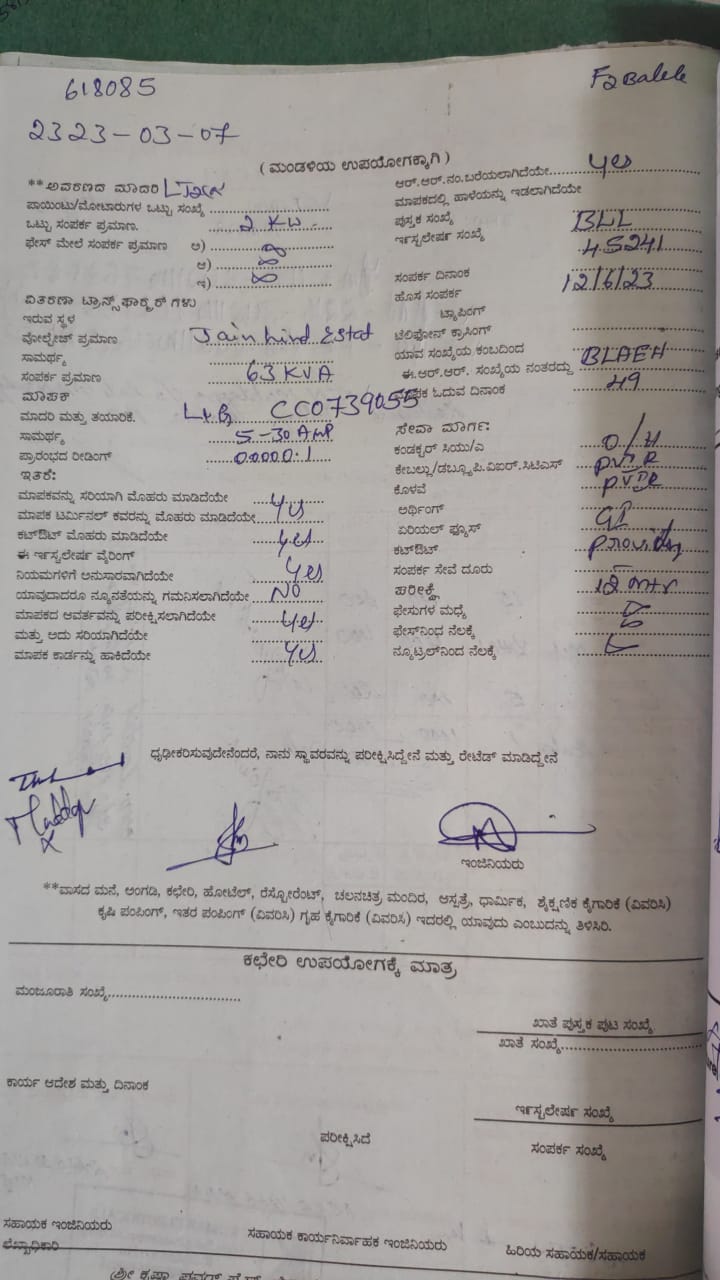 618085
F2 Balele
2323-03-07
( ಮಂಡಳಿಯ ಉಪಯೋಗಕ್ಕಾಗಿ )
**ಆವರಣದ ಮಾದರಿ
ಪಾಯಿಂಟು/ಮೋಟಾರುಗಳ ಒಟ್ಟು ಸಂಖ್ಯೆ
ಒಟ್ಟು ಸಂಪರ್ಕ ಪ್ರಮಾಣ. 2 KW
ಫೇಸ್ ಮೇಲೆ ಸಂಪರ್ಕ ಪ್ರಮಾಣ ಅ)
ಆ)
ಇ)
ವಿತರಣಾ ಟ್ರಾನ್ಸ್‌ಫಾರ್ಮರ್ ಗಳು
ಇರುವ ಸ್ಥಳ
ವೋಲ್ಟೇಜ್ ಪ್ರಮಾಣ Jain hind Estat
ಸಾಮರ್ಥ್ಯ
ಸಂಪರ್ಕ ಪ್ರಮಾಣ 63 KVA
ಮಾಪಕ
ಮಾದರಿ ಮತ್ತು ತಯಾರಿಕೆ. CC0739055
ಸಾಮರ್ಥ್ಯ 5-30 AMP
ಪ್ರಾರಂಭದ ರೀಡಿಂಗ್ 00000.1
ಇತರೆ:
ಮಾಪಕವನ್ನು ಸರಿಯಾಗಿ ಮೊಹರು ಮಾಡಿದೆಯೇ yes
ಮಾಪಕ ಟರ್ಮಿನಲ್ ಕವರನ್ನು ಮೊಹರು ಮಾಡಿದೆಯೇ
ಕಟ್‌ಔಟ್ ಮೊಹರು ಮಾಡಿದೆಯೇ yes
ಈ ಇನ್ಸ್ಟಲೇಷನ್ ವೈರಿಂಗ್
ನಿಯಮಗಳಿಗೆ ಅನುಸಾರವಾಗಿದೆಯೇ yes
ಯಾವುದಾದರೂ ನ್ಯೂನತೆಯನ್ನು ಗಮನಿಸಲಾಗಿದೆಯೇ NO
ಮಾಪಕದ ಆವರ್ತವನ್ನು ಪರೀಕ್ಷಿಸಲಾಗಿದೆಯೇ yes
ಮತ್ತು ಅದು ಸರಿಯಾಗಿದೆಯೇ
ಮಾಪಕ ಕಾರ್ಡನ್ನು ಹಾಕಿದೆಯೇ yes
ಆರ್.ಆರ್.ನಂ.ಬರೆಯಲಾಗಿದೆಯೇ yes
ಮಾಪಕದಲ್ಲಿ ಹಾಳೆಯನ್ನು ಇಡಲಾಗಿದೆಯೇ
ಪುಸ್ತಕ ಸಂಖ್ಯೆ BLL
ಇನ್ಸ್ಟಲೇಷನ್ ಸಂಖ್ಯೆ 45241
ಸಂಪರ್ಕ ದಿನಾಂಕ 12/6/23
ಹೊಸ ಸಂಪರ್ಕ
ಟ್ಯಾಪಿಂಗ್
ಟೆಲಿಫೋನ್ ಕ್ರಾಸಿಂಗ್
ಯಾವ ಸಂಖ್ಯೆಯ ಕಂಬದಿಂದ
ಈ.ಆರ್.ಆರ್. ಸಂಖ್ಯೆಯ ನಂತರದ್ದು BLAEH
ಮಾಪಕ ಓದುವ ದಿನಾಂಕ 49
ಸೇವಾ ಮಾರ್ಗ:
ಕಂಡಕ್ಟರ್ ಸಿಯು/ಎ O/H
ಕೇಬಲ್ಲು/ಡಬ್ಲ್ಯೂ.ಪಿ.ವಿಐಆರ್.ಸಿಟಿಎಸ್
ಕೊಳವೆ
ಅರ್ಥಿಂಗ್ GI
ಏರಿಯಲ್ ಫ್ಯೂಸ್
ಕಟ್‌ಔಟ್
ಸಂಪರ್ಕ ಸೇವೆ ದೂರು
ಪರೀಕ್ಷೆ 12 mtr
ಫೇಸುಗಳ ಮಧ್ಯೆ
ಫೇಸ್‌ನಿಂದ ನೆಲಕ್ಕೆ
ನ್ಯೂಟ್ರಲ್‌ನಿಂದ ನೆಲಕ್ಕೆ
ಧೃಢೀಕರಿಸುವುದೇನೆಂದರೆ, ನಾನು ಸ್ಥಾವರವನ್ನು ಪರೀಕ್ಷಿಸಿದ್ದೇನೆ ಮತ್ತು ರೇಟೆಡ್ ಮಾಡಿದ್ದೇನೆ
ಇಂಜಿನಿಯರು
**ವಾಸದ ಮನೆ, ಅಂಗಡಿ, ಕಛೇರಿ, ಹೋಟೆಲ್, ರೆಸ್ಟೋರೆಂಟ್, ಚಲನಚಿತ್ರ ಮಂದಿರ, ಆಸ್ಪತ್ರೆ, ಧಾರ್ಮಿಕ, ಶೈಕ್ಷಣಿಕ ಕೈಗಾರಿಕೆ (ವಿವರಿಸಿ)
ಕೃಷಿ ಪಂಪಿಂಗ್, ಇತರ ಪಂಪಿಂಗ್ (ವಿವರಿಸಿ) ಗೃಹ ಕೈಗಾರಿಕೆ (ವಿವರಿಸಿ) ಇದರಲ್ಲಿ ಯಾವುದು ಎಂಬುದನ್ನು ತಿಳಿಸಿರಿ.
ಕಛೇರಿ ಉಪಯೋಗಕ್ಕೆ ಮಾತ್ರ
ಮಂಜೂರಾತಿ ಸಂಖ್ಯೆ
ಖಾತೆ ಪುಸ್ತಕ ಪುಟ ಸಂಖ್ಯೆ
ಖಾತೆ ಸಂಖ್ಯೆ
ಕಾರ್ಯ ಆದೇಶ ಮತ್ತು ದಿನಾಂಕ
ಇನ್ಸ್ಟಲೇಷನ್ ಸಂಖ್ಯೆ
ಪರೀಕ್ಷಿಸಿದೆ
ಸಂಪರ್ಕ ಸಂಖ್ಯೆ
ಸಹಾಯಕ ಇಂಜಿನಿಯರು
ಲೆಖ್ಖಾಧಿಕಾರಿ
ಸಹಾಯಕ ಕಾರ್ಯನಿರ್ವಾಹಕ ಇಂಜಿನಿಯರು
ಹಿರಿಯ ಸಹಾಯಕ/ಸಹಾಯಕ